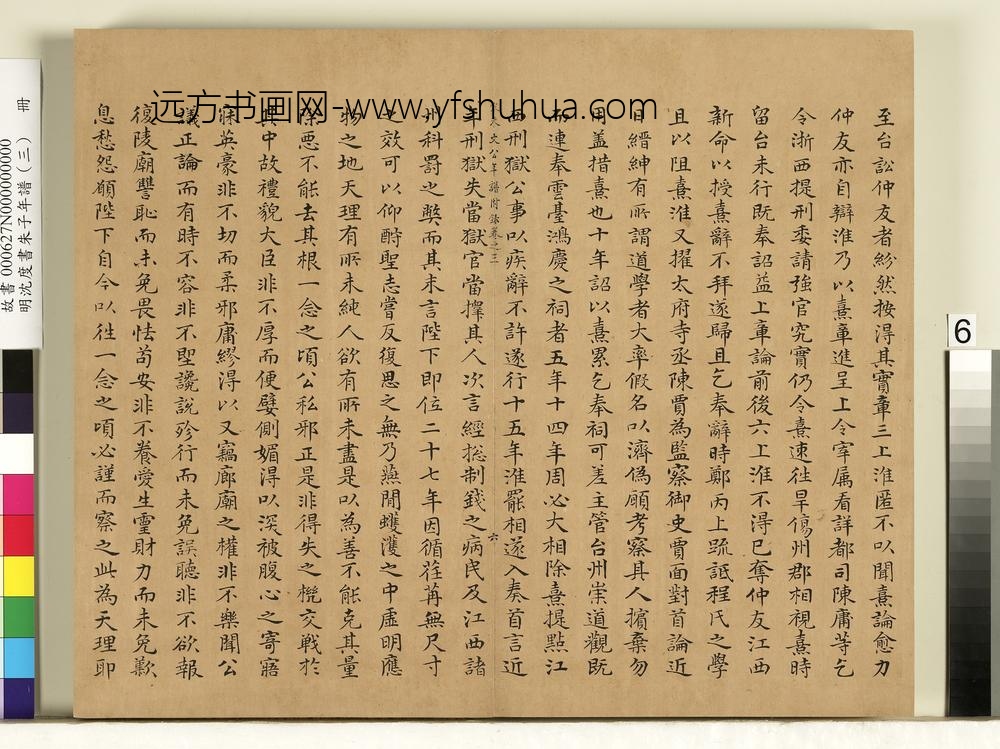 至台訟仲友者紛然按得其實章三上淮匿不以聞熹論愈力
仲友亦自辯淮乃以熹章進呈上令宰属看詳都司陳庸等乞
令浙西提刑委請強官究實仍令熹速徃旱傷州郡相視熹時
留台未行既奉詔益上章論前後六上淮不得已奪仲友江西
新命以授熹辭不拜遂歸且乞奉辭時鄭丙上疏詆程氏之學
且以阻熹淮又擢太府寺丞陳賈為監察御史賈面對首論近
日縉紳有所謂道學者大率假名以濟偽願考察其人擯棄勿
用蓋措熹也十年詔以熹累乞奉祠可差主管台州崇道觀既
而連奉雲臺鴻慶之祠者五年十四年周必大相除熹提點江
西刑獄公事以疾辭不許遂行十五年淮罷相遂入奏首言近
文公年譜附録卷之三
六
年刑獄失當獄官當擇其人次言經総制錢之病民及江西諸
州科罰之獘而其末言陛下即位二十七年因循荏苒無尺寸
之效可以仰酧聖志嘗反復思之無乃燕閒蠖濩之中虚明應
物之地天理有所未純人欲有所未盡是以為善不能克其量
除惡不能去其根一念之頃公私邪正是非得失之機交戰於
其中故禮貌大臣非不厚而便嬖側媚得以深被腹心之寄寤
寐英豪非不切而柔邪庸繆得以又竊廊廟之權非不樂聞公
議正論而有時不容非不聖讒說殄行而未免誤聽非不欲報
復陵廟讐恥而未免畏怯苟安非不養愛生靈財力而未免歎
息愁怨願陛下自今以徃一念之頃必謹而察之此為天理耶
远方书画网-www.yfshuhua.com
故書 000627N000000000
明沈度書朱子年譜(三) 冊
6